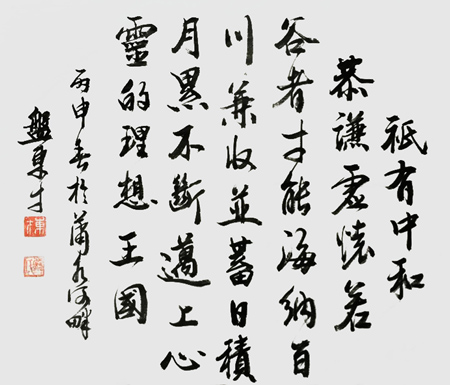 祇有中和
恭謙虛懷若
谷者才能海納百
川兼收並蓄日積
月累不斷邁上心
靈的理想王國
丙申春於瀟水河畔
盤東才